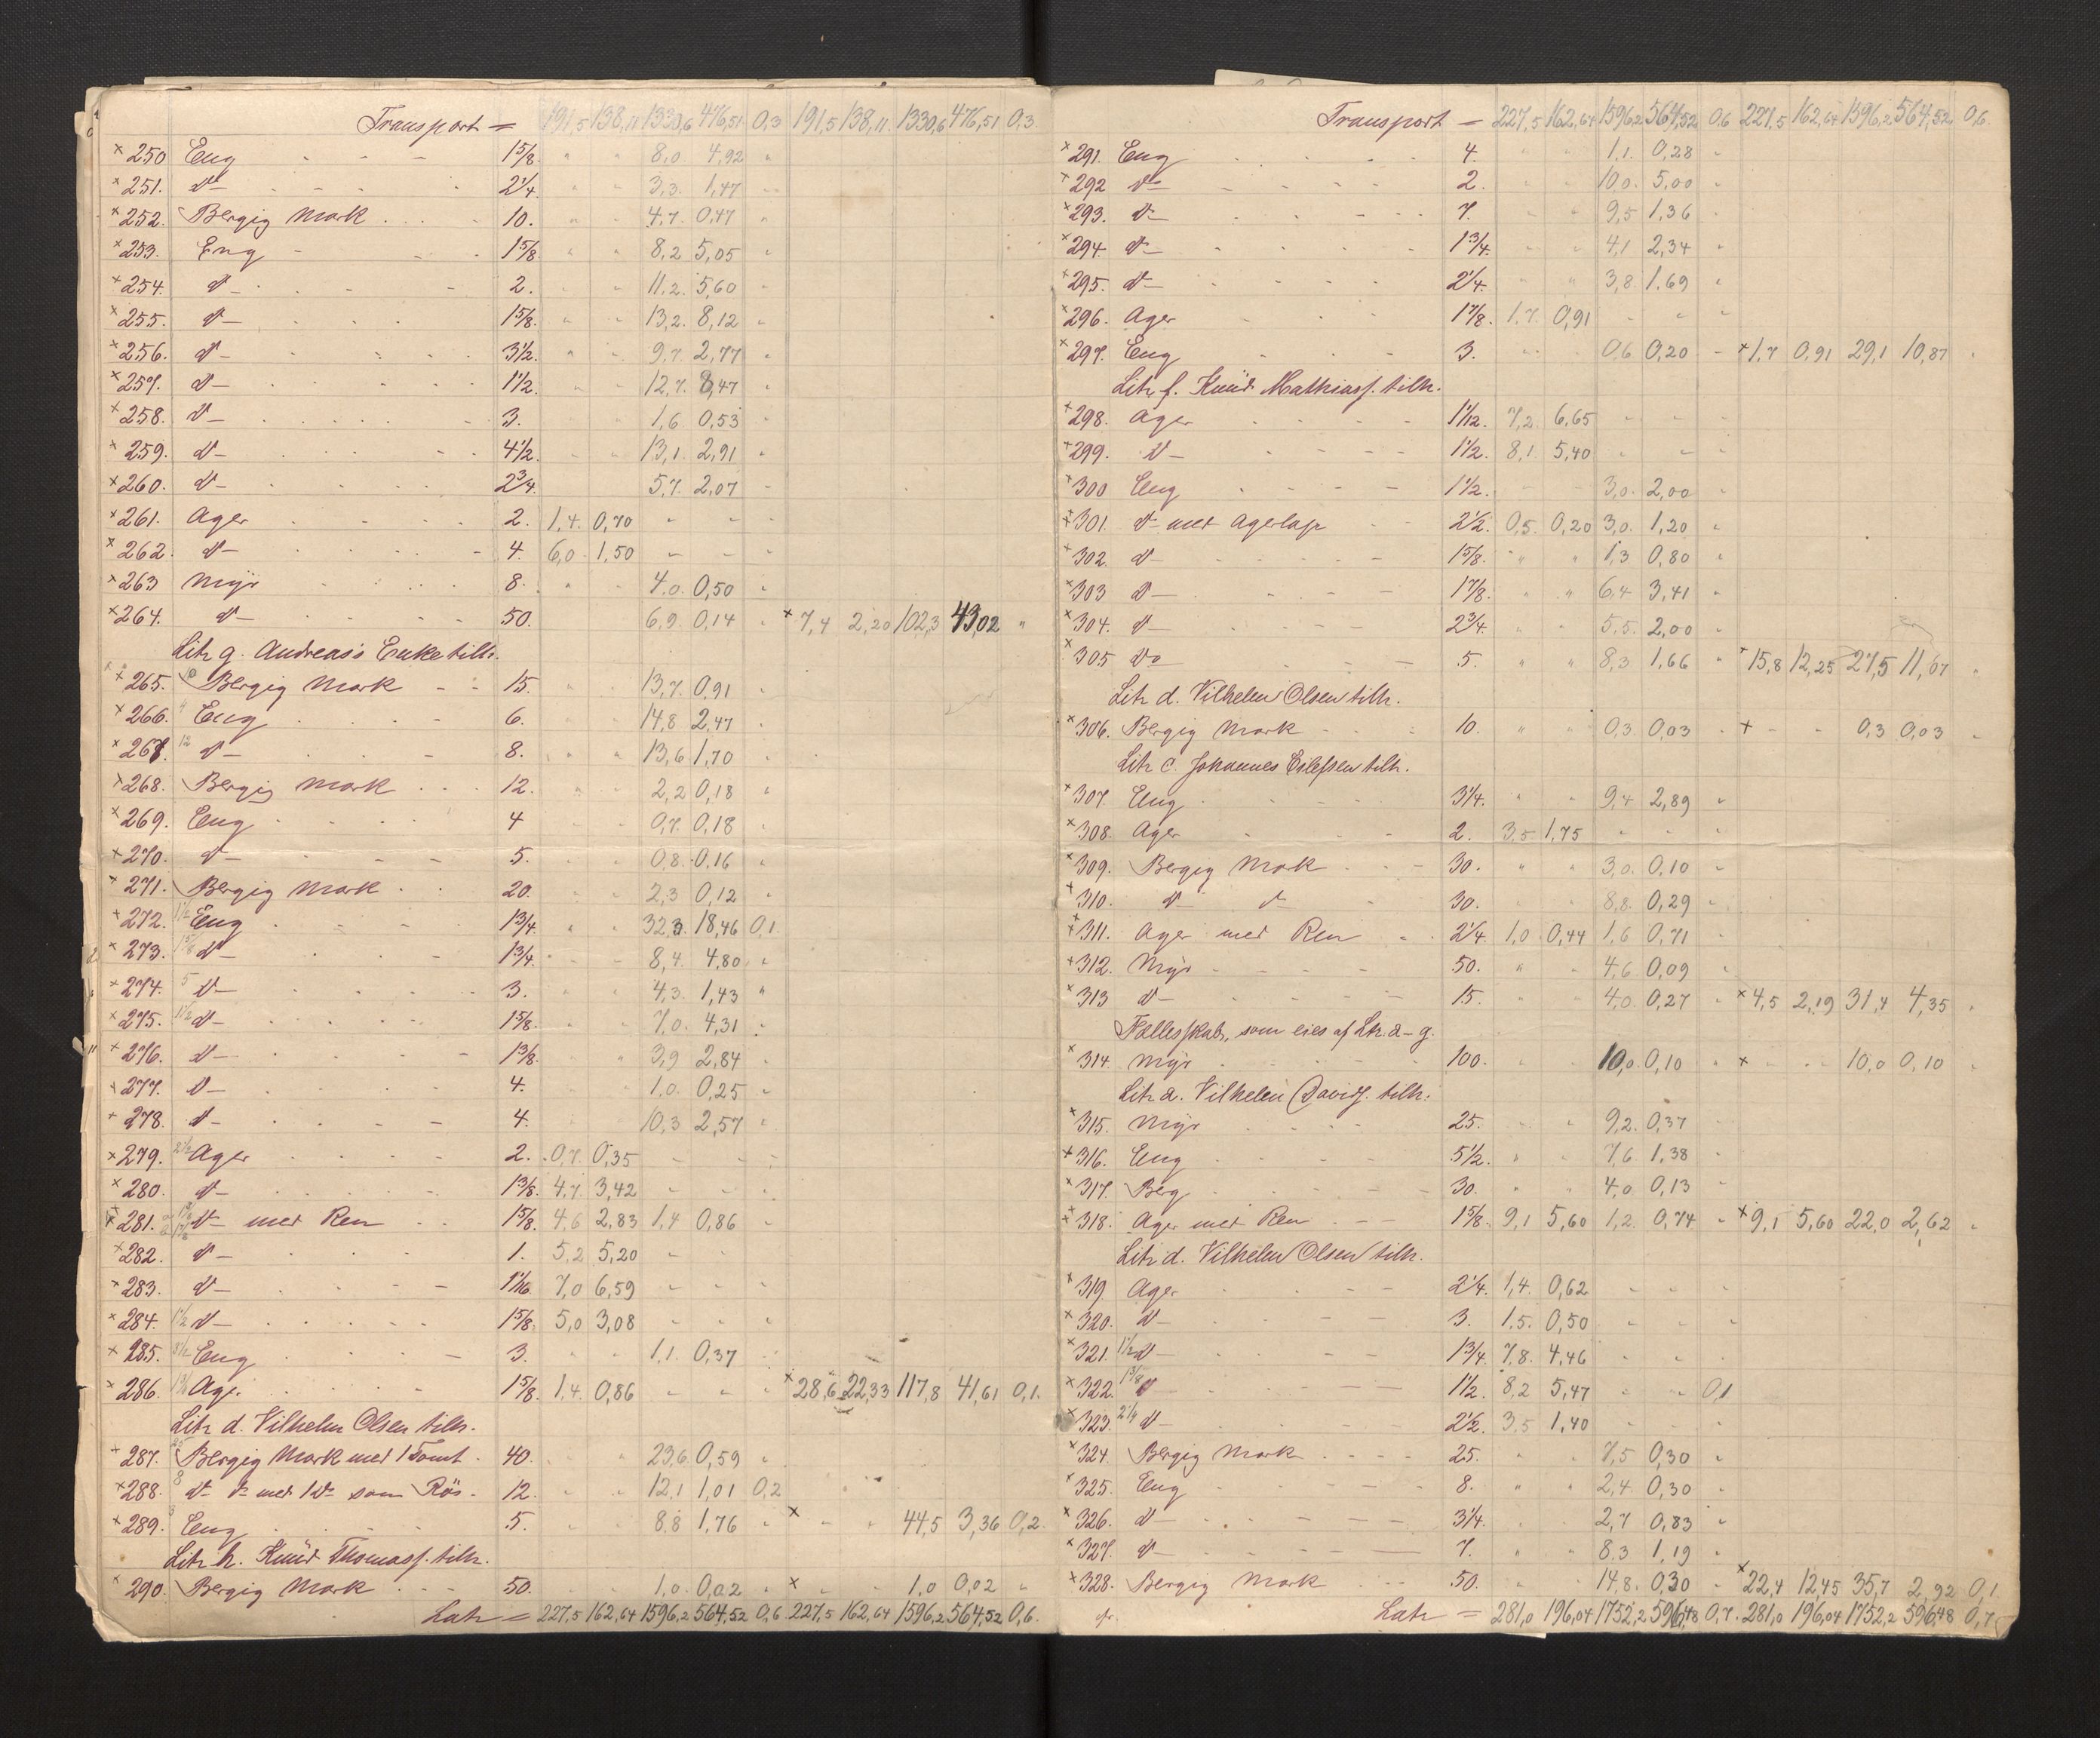 Transport = 191,5 138,11 1330,6 476,51 0,3 191,5 138,11. 1330,6 476,51 0,3.
× 250 Eng - - - 15/8. " " 8,0. 4,92 "
× 251. d° - - - - 2 1/4. " " 3,3. 1,47 "
× 252. Bergig Mark . . - 10. " " 4,7. 0,47 "
× 253. Eng - - - 15/8 " " 8,2 5,05 "
× 254. d° - - - - 2. " " 11,2. 5,60 "
× 255. d° - - - 15/8. " " 13,2. 8,12 "
× 256. d° - - - - 3 1/2. " " 9,7. 2,77 "
× 257. d° - - - - 1 1/2. " " 12,7. 8,47 "
× 258. d° - - - - 3. " " 1,6 0,53 "
× 259. d° - - - - 4 1/2. " " 13,1. 2,91 "
× 260. d° - - - - 2 3/4. " " 5,7. 2,07 "
× 261. Ager - - - - 2. 1,4. 0,70 " " "
× 262. d° - - - - 4. 6,0 1,50 " " "
× 263 Myr - - - 8. " " 4,0. 0,50 "
× 264. d° - - - - 50. 6,9. 0,14 " × 7,4 2,20 102,3 43,02 "
Litr g. Andreas's Enke tilh.
× 265. 10 Bergig Mark - - 15. " " 13,7. 0,91 "
× 266. 4 Eng - - - 6. " " 14,8 2,47 "
× 267. 12 d° - - - 8. " " 13,6 1,70 "
× 268. Bergig Mark . . . 12. " " 2,2 0,18 "
× 269. Eng - - - - 4 " " 0,7. 0,18 "
× 270. d° - - - 5. " " 0,8. 0,16 "
× 271. Bergig Mark . . 20. " " 2,3 0,12 "
× 272. 1 1/2 Eng - - - - 1 3/4. " " 32,3. 18,46 0,1.
× 273. 1 5/8 d° - - - 1 3/4. " " 8,4. 4,80 "
× 274. 5 d° - - - - 3. " " 4,3. 1,43 "
× 275. 1 1/2 d° - - - - 15/8. " " 7,0. 4,31 "
× 276. d° - - - - 13/8. " " 3,9 2,84 "
× 277. d° - - - - 4. " " 1,0. 0,25 "
× 278. d° - - - - 4. " " 10,3 2,57 "
× 279. 2 1/2 Ager - - - - 2. 0,7. 0,35 " " "
× 280. d° - - - - 13/8. 4,7. 3,42 " " "
× 281. d° med Ren . . 15/8. 4,6 2,83 1,4 0,86 "
× 282. d° - - - 1. 5,2 5,20 " "
× 283. d° - - - 1 1/16. 7,0 6,59 " " "
× 284. 1 1/2 d° - - - - 15/8. 5,0 3,08 " " "
× 285. 3 1/2 Eng - - - 3. " " 1,1. 0,37 "
× 286. Ager - - - 15/8. 1,4. 0,86 " " " × 28,6 22,33 117,8 41,61 0,1.
Litr d. Vilhelm Olsen tilh.
× 287. 25 Bergig Mark med 1 Tomt . 40. " " 23,6 0,59 "
× 288. 8 d° d° med 1 d° som Rös - 12. " " 12,1 1,01 0,2
× 289. Eng - - - 5. " " 8,8 1,76 " × " " 44,5 3,36 0,2.
Litr h. Knud Thomass. tilh.
× 290. Bergig Mark . . - 50. " " 1,0. 0,02 " × " " 1,0 0,02 "
Latr = 227,5 162,64 1596,2 564,52 0,6 227,5 162,64 1596,2 564,52 0,6.
Transport = 227,5 162,64 1596,2 564,52 0,6 227,5 162,64 1596,2 564,52 0,6.
× 291. Eng - - - - 4. " " 1,1. 0,28 "
× 292 d° - - - - 2. " " 10,0. 5,00 "
× 293. d° - - - - 7. " " 9,5 1,36 "
× 294. d° - - - - 1 3/4. " " 4,1 2,34 "
× 295. d° - - - - 2 1/4. " " 3,8 1,69 "
× 296. Ager - - - 17/8. 1,7. 0,91 " " "
× 297. Eng - - - 3. " " 0,6 0,20 " × 1,7 0,91 29,1 10,87 "
Litr f. Knud Mathiass. tilh.
× 298. Ager - - - - 1 1/12. 7,2. 6,65 " "
× 299. d° - - - - 1 1/2. 8,1 5,40 " " "
× 300 Eng - - - - 1 1/2. " " 3,0. 2,00 "
× 301. d° med Agerlap - - 2 1/2. 0,5. 0,20 3,0. 1,20 "
× 302. d° - - - - 15/8. " " 1,3 0,80 "
× 303 d° - - - - 17/8. " " 6,4 3,41 "
× 304. d° - - - - 2 3/4. " " 5,5. 2,00 "
× 305 do - - - 5. " " 8,3 1,66 " × 15,8 12,25 27,5 11,07 "
Litr d. Vilhelm Olsen tilh.
× 306. Bergig Mark - - - 10. " " 0,3. 0,03 " × " " 0,3 0,03 "
Litr c. Johannes Eilefsen tilh.
× 307. Eng - - - - 3 1/4. " " 9,4 2,89 "
× 308. Ager - - - 2. 3,5 1,75 " " "
× 309. Bergig Mark . . - 30. " " 3,0. 0,10 "
× 310. d° d° - - 30. " " 8,8. 0,29 "
× 311. Ager med Ren - . 2 1/4. 1,0 0,44 1,6 0,71 "
× 312. Myr - - - - 50. " " 4,6 0,09 "
× 313 d° - - - - 15. " " 4,0. 0,27 " × 4,5 2,19 31,4 4,35 "
Fællesskab, som eies af Ltr. a - g.
× 314. Myr - - - 100. " " 10,0. 0,10 " × " " 10,0 0,10 "
Litr a. Vilhelm Davids. tilh.
× 315. Myr - - - - 25. " " 9,2. 0,37 "
× 316. Eng - - - - 5 1/2. " " 7,6 1,38 "
× 317. Berg - - - - 30. " " 4,0 0,13 "
× 318. Ager med Ren - - - 15/8. 9,1 5,60 1,2. 0,74 " × 9,1 5,60 22,0 2,62 "
Litr d. Vilhelm Olsen tilh.
× 319. Ager - - - - 2 1/4. 1,4. 0,62 " " "
× 320. d° - - - - 3. 1,5. 0,50 " " "
× 321. 1 1/2 d° - - - 1 3/4. 7,8. 4,46 " "
× 322. 13/8 d° - - - 1 1/2. 8,2 5,47 " " 0,1
× 323. 2 1/4 d° - - - 2 1/2. 3,5 1,40 " "
× 324. Bergig Mark - - - - 25. " " 7,5 0,30 "
× 325. Eng - - - 8. " " 2,4. 0,30 "
× 326. d° - - - - 3 1/4. " " 2,7 0,83 "
× 327. d° - - - - 7. " " 8,3 1,19 "
× 328. Bergig Mark - - - 50. " " 14,8. 0,30 " × 22,4 12,45 35,7 2,92 0,1
Latr = 281,0 196,04 1752,2 596,48 0,7. 281,0 196,04 1752,2 596,48 0,7